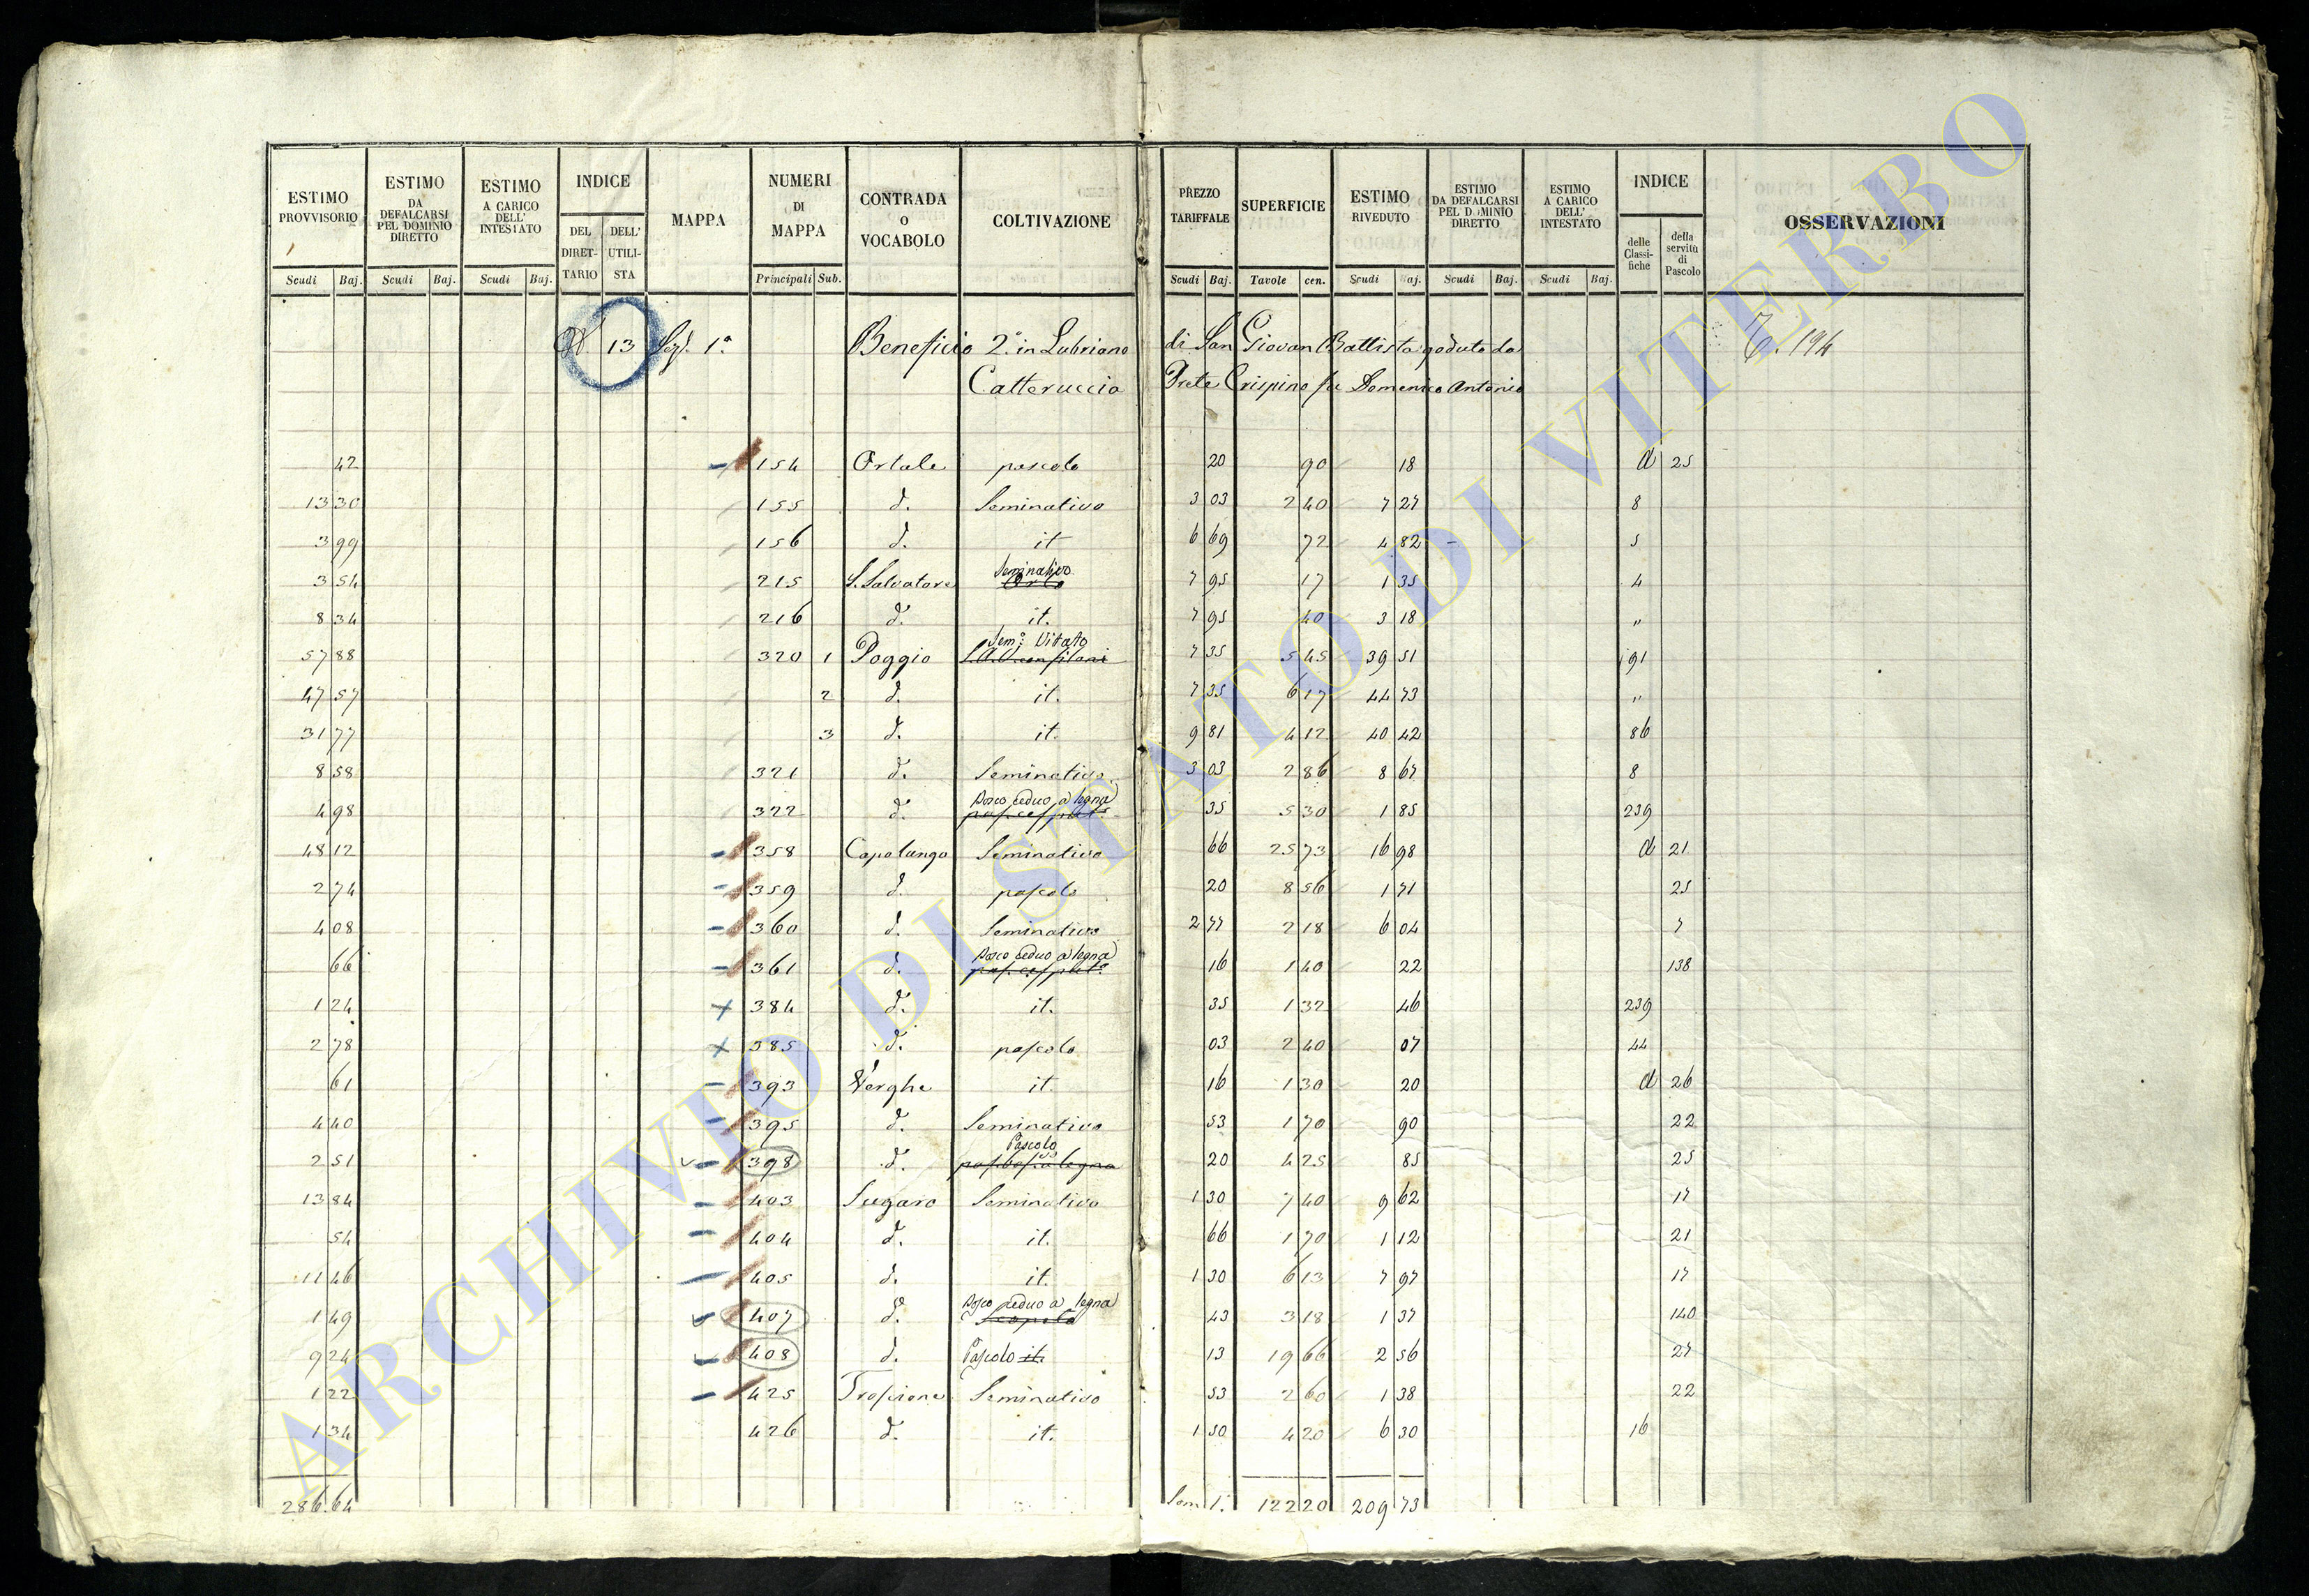 ESTIMO PROVVISORIO | ESTIMO DA DEFALCARSI PEL DOMINIO DIRETTO | ESTIMO A CARICO DELL' INTESTATO | INDICE | MAPPA | NUMERI DI MAPPA | CONTRADA O VOCABOLO | COLTIVAZIONE | PREZZO TARIFFALE | SUPERFICIE | ESTIMO RIVEDUTO | ESTIMO DA DEFALCARSI PEL DOMINIO DIRETTO | ESTIMO A CARICO DELL' INTESTATO | INDICE | OSSERVAZIONI
DEL DIRET-TARIO | DELL' UTILI-STA | delle Classi-fiche | della servitù di Pascolo
Scudi | Baj. | Scudi | Baj. | Scudi | Baj. | Principali | Sub. | Scudi | Baj. | Tavole | cen. | Scudi | aj. | Scudi | Baj. | Scudi | Baj.
13 1.ª Beneficio 2.° in Lubriano di San Giovan Battista goduto da 194
Catteruccia Prete Crispino fu Domenico Antonio
42 154 Ortale pascolo 20 90 18 d 25
13 30 155 d. Seminativo 3 03 2 40 7 27 8
3 99 156 d. it 6 69 72 4 82 5
3 54 215 S. Salvatore Seminativo Orto 7 95 17 1 35 4
8 34 216 d. it. 7 95 40 3 18 "
57 88 320 1 Poggio Sem.° Vitato 7 35 5 45 39 51 91
47 57 2 d. it. 7 35 6 17 44 73 "
31 77 3 d. it. 9 81 4 12 40 42 86
8 58 321 d. Seminativo 3 03 2 86 8 67 8
4 98 322 d. Bosco ceduo a legna 35 5 30 1 85 239
48 12 358 Capolungo Seminativo 66 25 73 16 98 d 21
2 74 359 d. pascolo 20 8 56 1 71 25
4 08 360 d. Seminativo 2 77 2 18 6 04 7
66 361 d. Bosco ceduo a legna 16 1 40 22 138
1 24 384 d. it. 35 1 32 46 239
2 78 385 d. pascolo 03 2 40 07 44
61 393 Verghe it. 16 1 30 20 d 26
4 40 395 d. Seminativo 53 1 70 90 22
2 51 398 d. Pascolo 20 4 25 85 25
13 84 403 Sugaro Seminativo 1 30 7 40 9 62 17
54 404 d. it. 66 1 70 1 12 21
11 46 405 d. it. 1 30 6 13 7 97 17
1 49 407 d. Bosco ceduo a legna 43 3 18 1 37 140
9 24 408 d. Pascolo it. 13 19 66 2 56 27
1 22 425 Seminativo 53 2 60 1 38 22
1 34 426 d. it. 1 50 4 20 6 30 16
286.64 122 20 209 73
ARCHIVIO DI STATO DI VITERBO